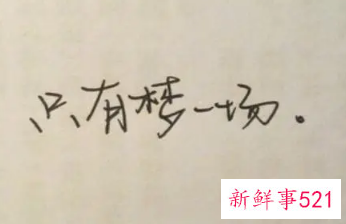 只有梦一场.
新鲜事521